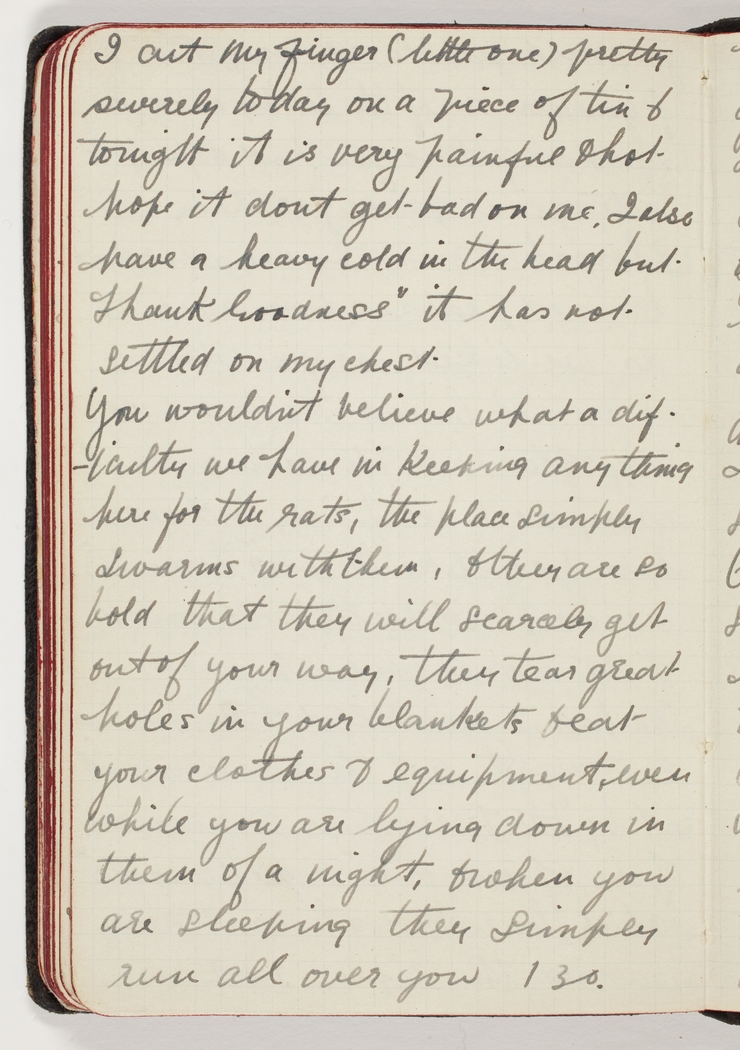 I cut my finger (little one) pretty
severely today on a piece of tin &
tonight it is very painful & hot
hope it dont get bad on me, I also
have a heavy cold in the head but
Thank Goodness" it has not
settled on my chest
You wouldn't believe what a dif-
-iculty we have in keeping anything
here for the rats, the place simply
swarms with them, & they are so
bold that they will scarcely get
out of your way, they tear great
holes in your blankets & eat
your clothes & equipment, even
while you are lying down in
them of a night, & when you
are sleeping they simply
run all over you 130.